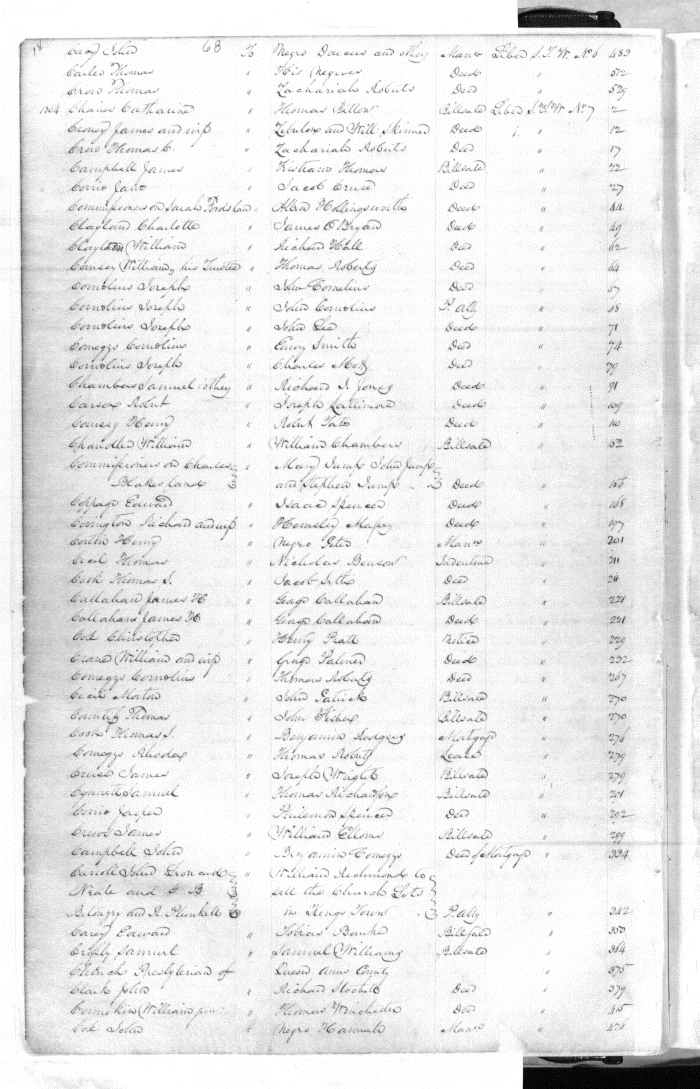 68
Casy John To Negro Dorcus and others Manu Liber S.T.W. No 6 483
Carter Thomas " His Negroes Deed " 572
Crow Thomas " Zachariah Roberts Deed " 529
1804 Chaires Catharine " Thomas Bellow Billsale Liber S.T.W. No 7 2
Croney James and wife " Zebulon and Will: Skinner Deed " 12
Crow Thomas C. " Zachariah Roberts Deed 17
Campbell James " Thomas Billsale " 22
Corrie Jane " Jacob Cruse Deed " 27
Commissioners on Sarah Fords land " Allen Hollingsworth Deed " 44
Clayland Charlotte " James O Bryan Deed " 49
Clayton William " Richard Hall Deed " 62
William his Trustee " Thomas Roberts Deed " 64
Cornelius Joseph " John Cornelius Deed " 67
Cornelius Joseph " John Cornelius P. Atty " 68
Cornelius Joseph " John Lee Deed " 71
Comegys Cornelius " Smith Deed " 74
Cornelius Joseph " Charles Deed " 79
Chambers Samuel & others " Richard I. Jones Deed " 91
Carson Robert " Joseph Lattimore Deed " 109
Henry " Robert Tate Deed " 110
Chandler William " William Chambers Billsale " 52
Commissioners on Charles " Mary Jump John Jump
Blakes land and Stephen Jump Deed " 166
Coppage Edward " Isaac Spencer Deed " 168
Covington Richard and wife " Hemsley Deed " 197
Henry " Negro Peter Manu " 201
Cecil Thomas " Nicholas Benson Indenture " 211
Cook Thomas S. " Jacob Deed " 211
Callahan James H " George Callahan Billsale " 221
Callahan James H " George Callahan Deed " 221
Cox Christopher " Henry Pratt Notice " 229
Crane William and wife " George Palmer Deed " 232
Comegys Cornelius " Thomas Roberts Deed " 267
Cecil " John Patrick Billsale " 270
Thomas " John Fisher Billsale " 270
Cook Thomas S. " Benjamin Rodgers Mortgage " 276
Comegys " Thomas Roberts Lease " 279
Cruse James " Joseph Wright Billsale " 279
Samuel " Thomas Richardson Billsale " 281
Corrie " Philemon Spencer Deed " 292
James " William Elloms Billsale " 299
Campbell John " Benjamin Comegys Deed of Mortgage " 334
Carroll John and William Redmond to
Neale and G. B sell the Church Lots
and R. Plunkett in Kings Town P. Atty " 342
Carey Edward " Tobias Bourke Billsale " 350
Samuel " Samuel Williams Billsale " 364
Church Presbyterian of Queen Anns County " 375
Clark John " Richard Deed " 379
William " Thomas Winchester Deed " 415
Cox John " Negro Hannah Manu " 426